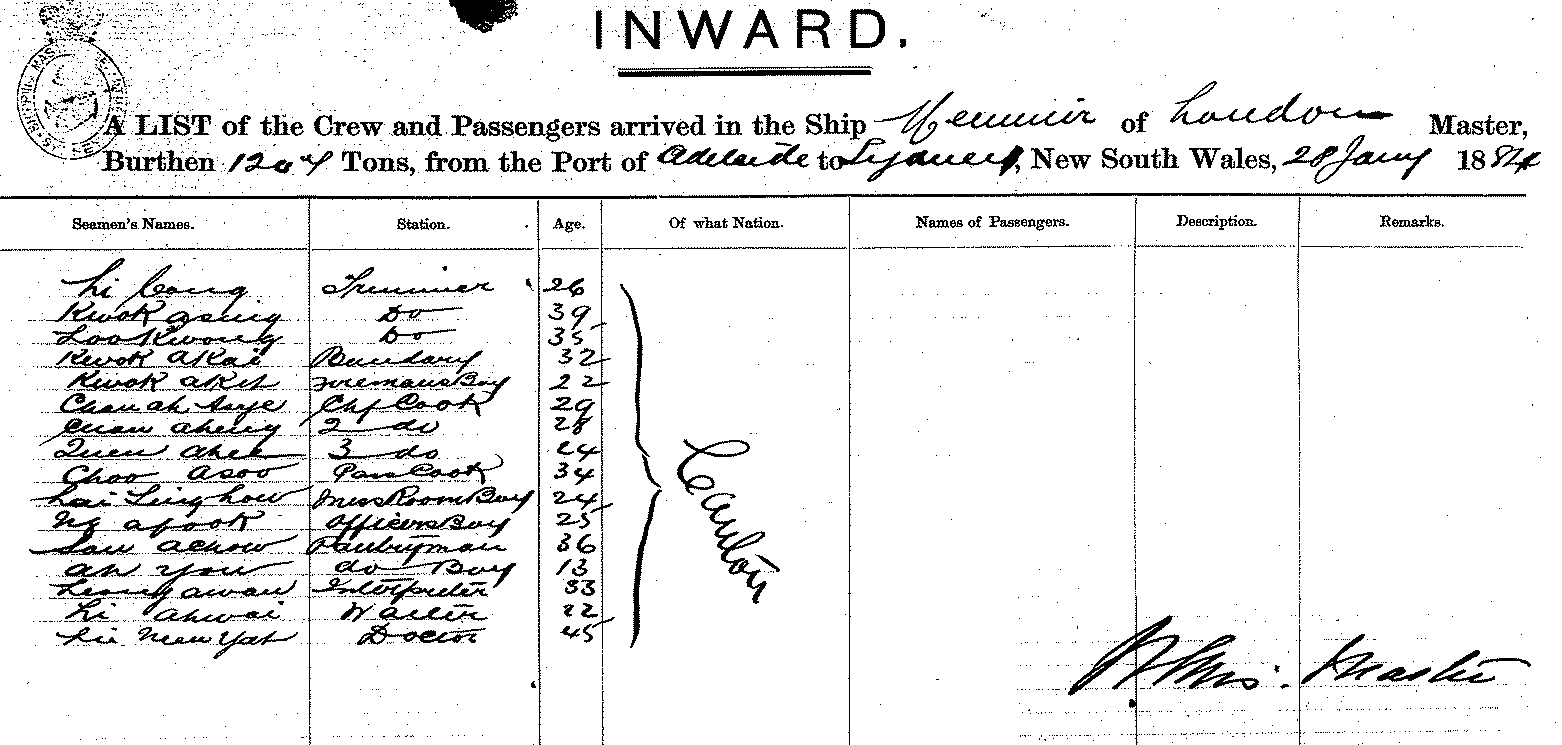 INWARD.
A LIST of the Crew and Passengers arrived in the Ship Menmuir of London Master,
Burthen 1204 Tons, from the Port of Adelaide to Sydney, New South Wales, 28 Jany 1884
Seamen's Names. Station. Age. Of what Nation. Names of Passengers. Description. Remarks.
Li Cong Trimmer 26
Kwok Do 39
Loo Kwong Do 35
Kwok Akai 32
Kwok Aket Firemans Boy 22
Chan ah Chf Cook 29
Chan Aheng 2 do 28
3 do 24
Choo Asoo Pass Cook 34
Lai Ling how Mess Room Boy 24
Ng apook Officers Boy 25
Achow Pantryman 36
Ah You do Boy 13
Leong awan Interpreter 33
Li Ahwai Waiter 22
Yat Doctor 45
Canton
Master